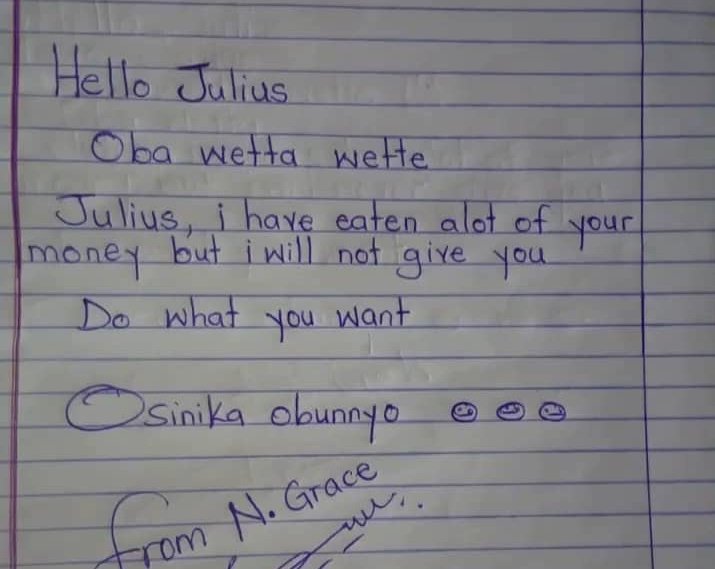 Hello Julius
Oba wetta wette
Julius, i have eaten alot of your
money but i will not give you
Do what you want
Osinika obunnyo
from N. Grace